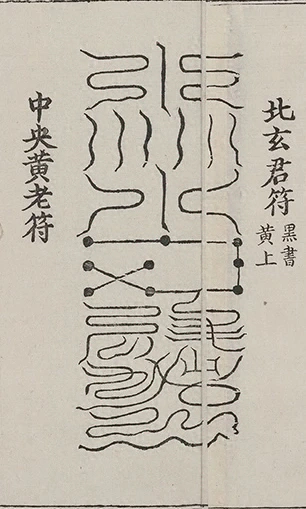 北玄君符
黑書
黄上
中央黄老符